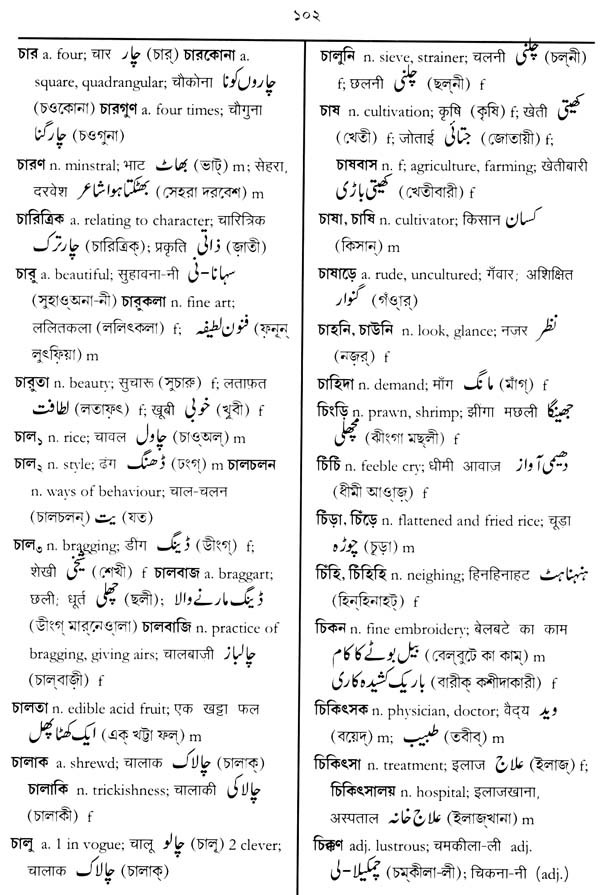 ১০২
চার a. four; चार چار (চার্) চারকোনা a.
square, quadrangular; चौकोना چاروں کونا
(চওকোনা) চারগুণ a. four times; चौगुना
چارگنا (চওগুনা)
চারণ n. minstral; भाट بھاٹ (ভাট্) m; सेहरा,
दरवेश بھٹکتا ہوا شاعر (সেহরা দরবেশ) m
চারিত্রিক a. relating to character; चारित्रिक
چارترک (চারিত্রিক্); प्रकृति ذاتی (জ়াতী)
চারু a. beautiful; सुहावना-नी سہانا-نی
(সুহাওঅনা-নী) চারুকলা n. fine art;
ललितकला (ললিৎকলা) f; فنون لطیفہ (ফ়নূন্
লুৎফ়িয়া) m
চারুতা n. beauty; सुचारू (সুচারু) f; लताफ़त
لطافت (লতাফ়ৎ) f; खूबी خوبی (খুবী) f
চাল১ n. rice; चावल چاول (চাওঅল্) m
চাল২ n. style; ढंग ڈھنگ (ঢংগ্) m চালচলন
n. ways of behaviour; चाल-चलन
(চালচলন্) یت (যত)
চাল৩ n. bragging; डींग ڈینگ (ডীংগ্) f;
शेखी شیخی (শেখী) f চালবাজ a. braggart;
छली; धूर्त چھلی (ছলী); ڈینگ مارنے والا
(ডীংগ্ মার্‌নেওা়লা) চালবাজি n. practice of
bragging, giving airs; चालबाजी چالباز
(চাল্‌বাজ়ী) f
চালতা n. edible acid fruit; एक खट्टा फल
ایک کھٹا پھل (এক্ খট্টা ফল্) m
চালাক a. shrewd; चालाक چالاک (চালাক্)
চালাকি n. trickishness; चालाकी چالاکی
(চালাকী) f
চালু a. 1 in vogue; चालू چالو (চালূ) 2 clever;
चालाक چالاک (চালাক্)
চালুনি n. sieve, strainer; चलनी چلنی (চল্‌নী)
f; छलनी چلنی (ছল্‌নী) f
চাষ n. cultivation; कृषि (কৃষি) f; खेती کھیتی
(খেতী) f; जोताई جتائی (জোতায়ী) f;
চাষবাস n. f; agriculture, farming; खेतीबारी
کھیتی باڑی (খেতীবারী) f
চাষা, চাষি n. cultivator; किसान کسان
(কিসান্) m
চাষাড়ে a. rude, uncultured; गँवार; अशिक्षित
گنوار (গঁওা়র্)
চাহনি, চাউনি n. look, glance; नजर نظر
(নজ়র্) f
চাহিদা n. demand; माँग مانگ (মাঁগ্) f
চিংড়ি n. prawn, shrimp; झींगा मछली جھینگا
مچھلی (ঝীংগা মছ্‌লী) f
চিঁচিঁ n. feeble cry; धीमी आवाज़ دھیمی آواز
(ধীমী আওা়জ়্) f
চিঁড়া, চিঁড়ে n. flattened and fried rice; चूडा
چوڑہ (চূড়া) m
চিঁহি, চিঁহিহি n. neighing; हिनहिनाहट ہنہناہٹ
(হিন্‌হিনাহট্) f
চিকন n. fine embroidery; बेलबटे का काम
بیل بوٹے کا کام (বেল্‌বুটে কা কাম্) m
باریک کشیدہ کاری (বারীক্ কশীদাকারী) f
চিকিৎসক n. physician, doctor; वैद्य وید
(বয়েদ্) m; طبیب (তবীব্) m
চিকিৎসা n. treatment; इलाज علاج (ইলাজ়্) f;
চিকিৎসালয় n. hospital; इलाजखाना,
अस्पताल علاج خانہ (ইলাজ়্‌খানা) m
চিক্কণ adj. lustrous; चमकीला-ली adj.
چمکیلا-لی (চম্‌কীলা-লী); चिकना-नी (adj.)